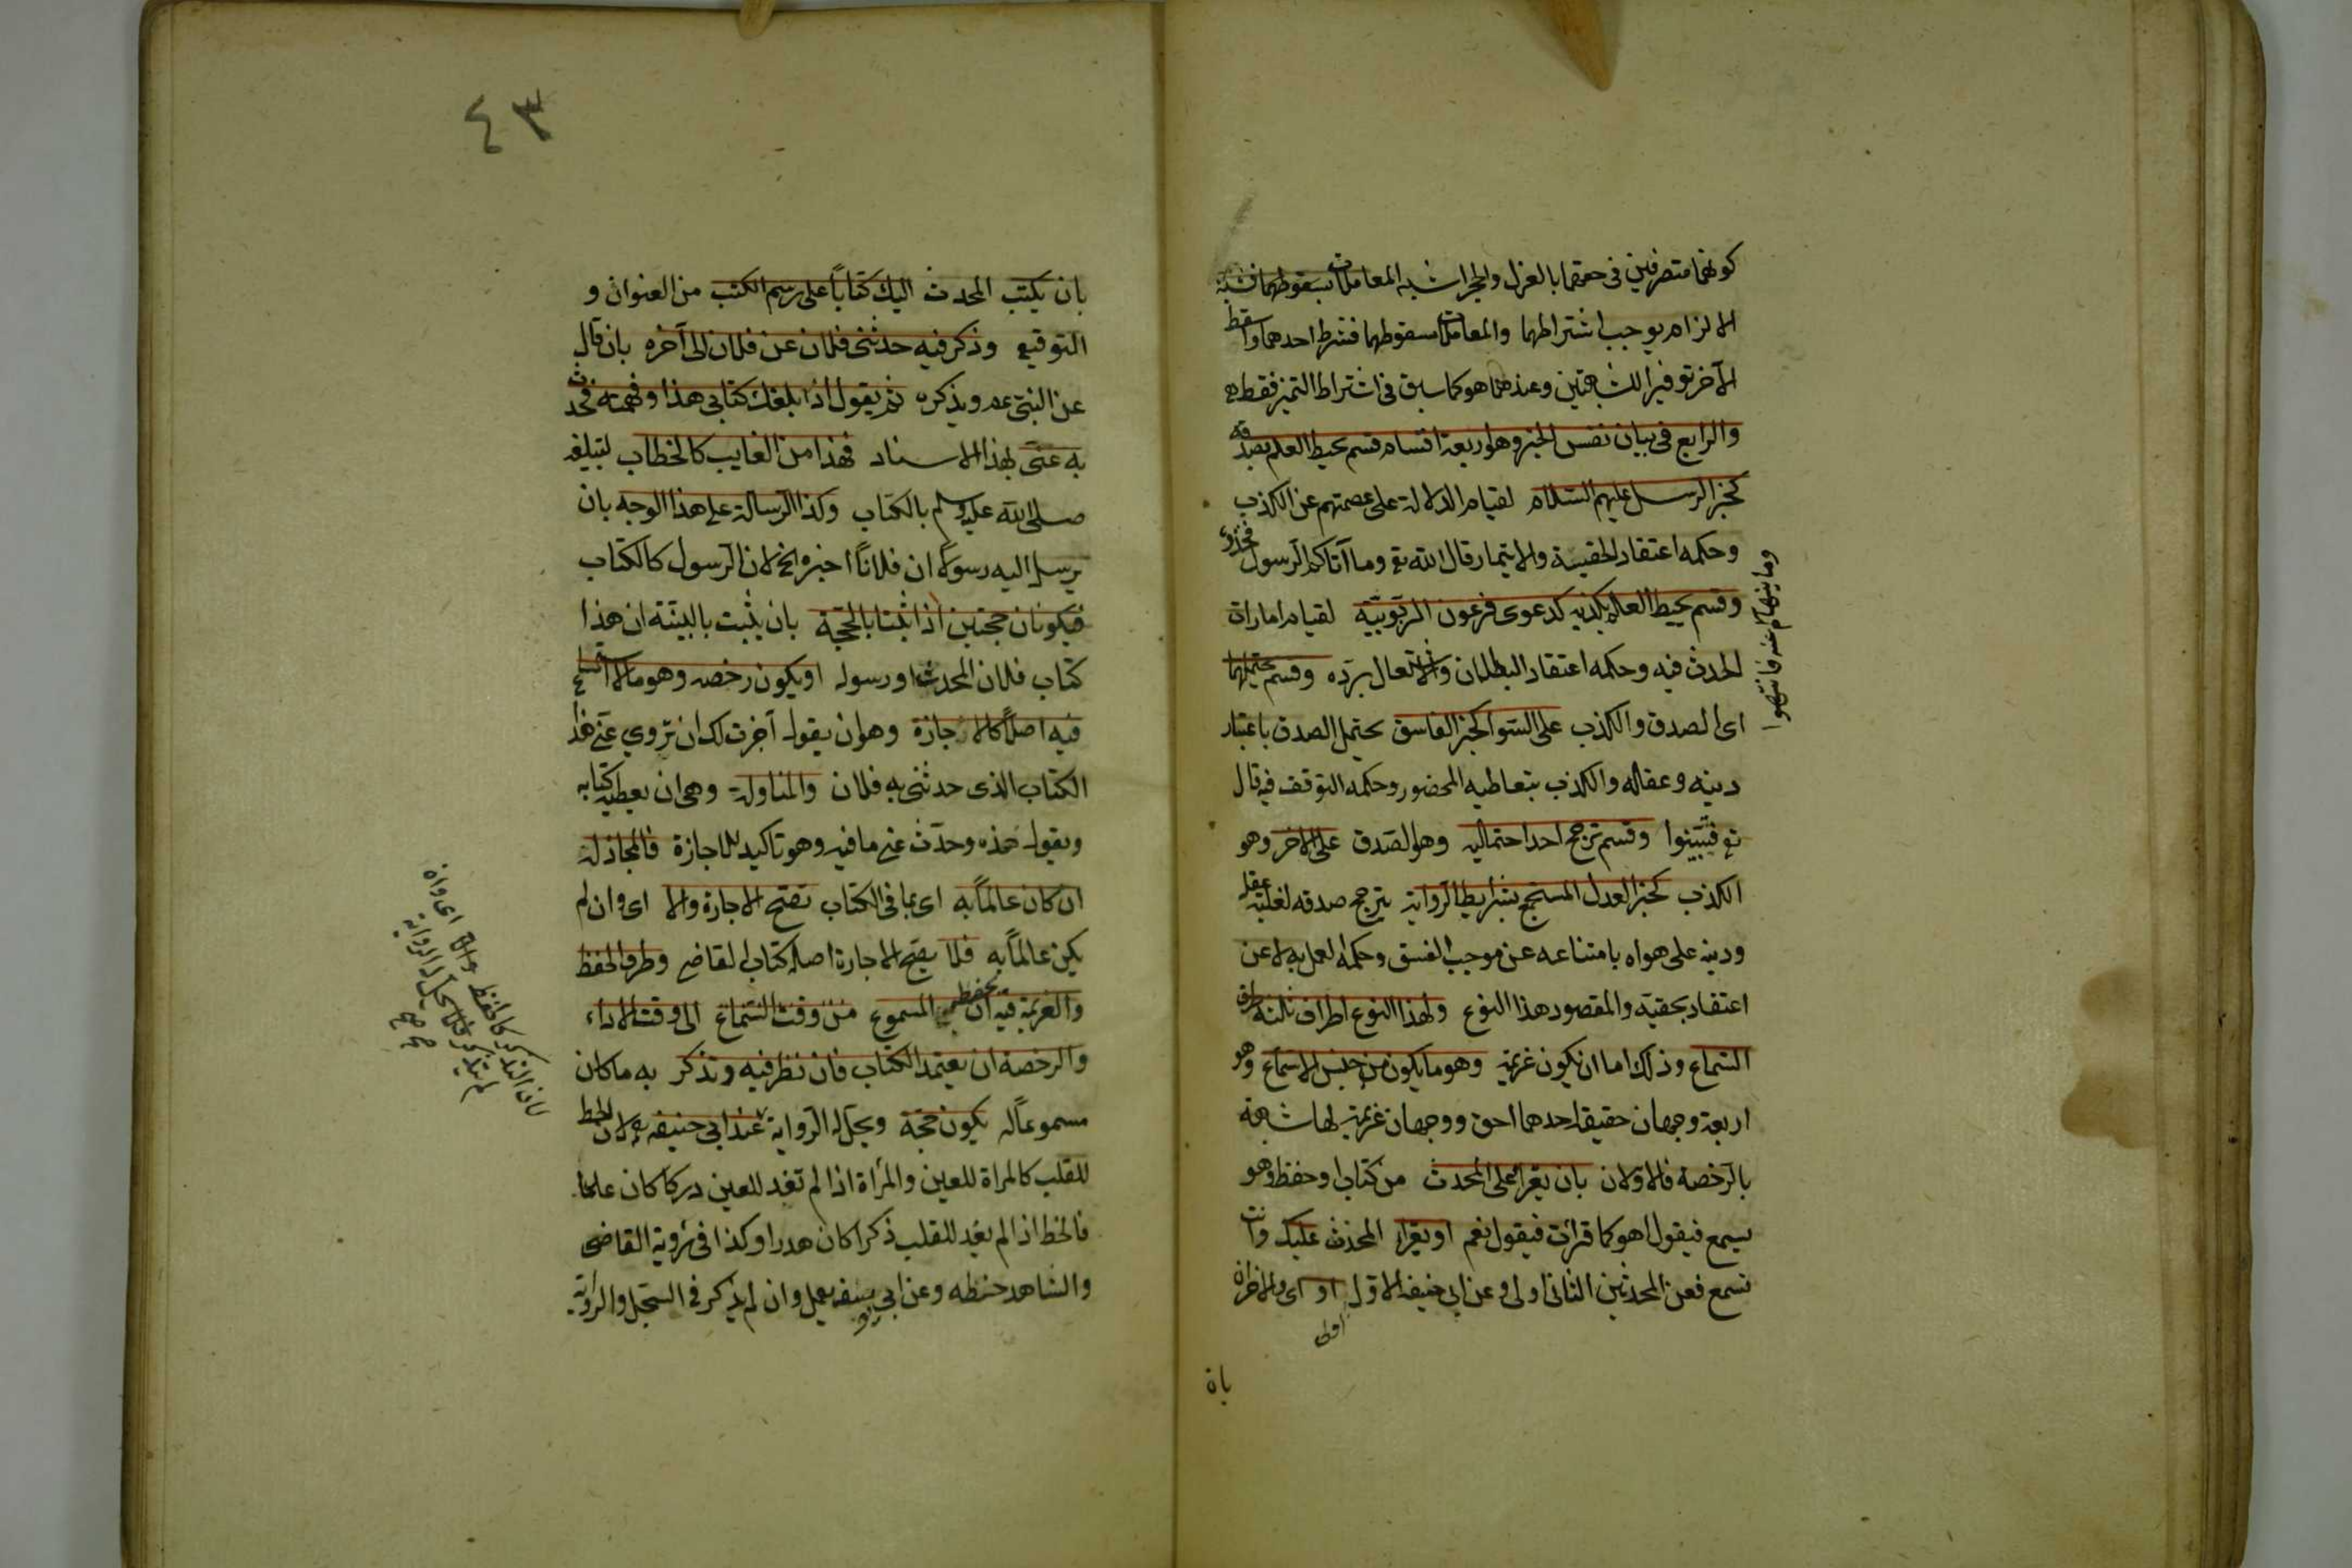 كونهما متصرفين في حقهما بالعزل والحجر اشبه المعاملات بسقوطهما فشبه
الالزام يوجب اشتراطهما والمعاملات سقوطهما فشرط احدهما واسقط
الآخر توفيرا للشبهتين وعندهما هو كما سبق في اشتراط التميز فقط
والرابع في بيان نفس الخبر وهو اربعة اقسام قسم يحيط العلم بصدقه
كخبر الرسل عليهم السلام لقيام الدلالة على عصمتهم عن الكذب
وحكمه اعتقاد الحقية والايتمار قال الله تع وما آتاكم الرسول فخذوه
وما نهاكم عنه فانتهوا
وقسم يحيط العلم بكذبه كدعوى فرعون الربوبية لقيام امارات
الحدث فيه وحكمه اعتقاد البطلان والاشتغال برده وقسم يحتملهما
اى الصدق والكذب على السوا كخبر الفاسق يحتمل الصدق باعتبار
دينه وعقله والكذب بتعاطيه المحضور وحكمه التوقف فيه قال
تع فتبينوا وقسم ترجح احد احتماليه وهو الصدق على الاخر وهو
الكذب كخبر العدل المستجمع بشرايط الرواية يترجح صدقه لغلبة عقله
ودينه على هواه بامتناعه عن موجب الفسق وحكمه العمل به لا عن
اعتقاد بحقيته والمقصود هذا النوع ولهذا النوع اطراف ثلثة طرف
السماع وذلك اما ان يكون عزيمة وهو ما يكون من جنس الاسماع وهو
اربعة وجهان حقيقة احدهما احق ووجهان عزيمة لها شبهة
بالرخصة فالاولان بان يقرا على المحدث من كتاب او حفظ وهو
يسمع فيقول اهو كما قرات فيقول نعم او يقرا المحدث عليك وانت
تسمع فعن المحدثين الثانى اولى وعن ابى حنيفة الاول او اى والاخران
بان
٤٣
بان يكتب المحدث اليك كتاباً على رسم الكتب من العنوان و
التوقيع وذكر فيه حدثنى فلان عن فلان الى آخره بان قال
عن النبى عم ويذكره ثم يقول اذا بلغك كتابى هذا وفهمته فحدث
به عنى بهذا الاسناد فهذا من الغايب كالخطاب لتبليغه
صلى الله عليه وسلم بالكتاب وكذا الرسالة على هذا الوجه بان
يرسل اليه رسولاً ان فلاناً اخبره الخ لان الرسول كالكتاب
فيكونان حجتين اذا ثبتا بالحجة بان يثبت بالبينة ان هذا
كتاب فلان المحدث او رسوله او يكون رخصه وهو ما لا اسماع
فيه اصلاً كالاجازة وهو ان يقول اجزت لك ان تروي عنى هذا
الكتاب الذى حدثنى به فلان والمناولة وهى ان يعطيه كتابه
ويقول خذه وحدث عنى ما فيه وهو تاكيد للاجازة فالمجاز له
ان كان عالماً به اى بما فى الكتاب تصح الاجازة والا اى وان لم
يكن عالماً به فلا يصح الاجازة اصله كتاب القاضى وطرف الحفظ
والعزيمة فيه ان يحفظ المسموع من وقت السماع الى وقت الاداء
والرخصة ان يعتمد الكتاب فان نظر فيه وتذكر به ما كان
مسموعاً له يكون حجة ويحل له الرواية عند ابى حنيفه لان الخط
للقلب كالمراة للعين والمرأة اذا لم تفد للعين دركا كان علما
فالخط اذا لم يفد للقلب ذكرا كان هدرا وكذا فى رؤية القاضى
والشاهد خطه وعن ابى يوسف يعمل وان لم يذكر فى السجل والرواية
لان التذكر كالحفظ والا اى وان
لم يتذكر فلا يحل له الرواية